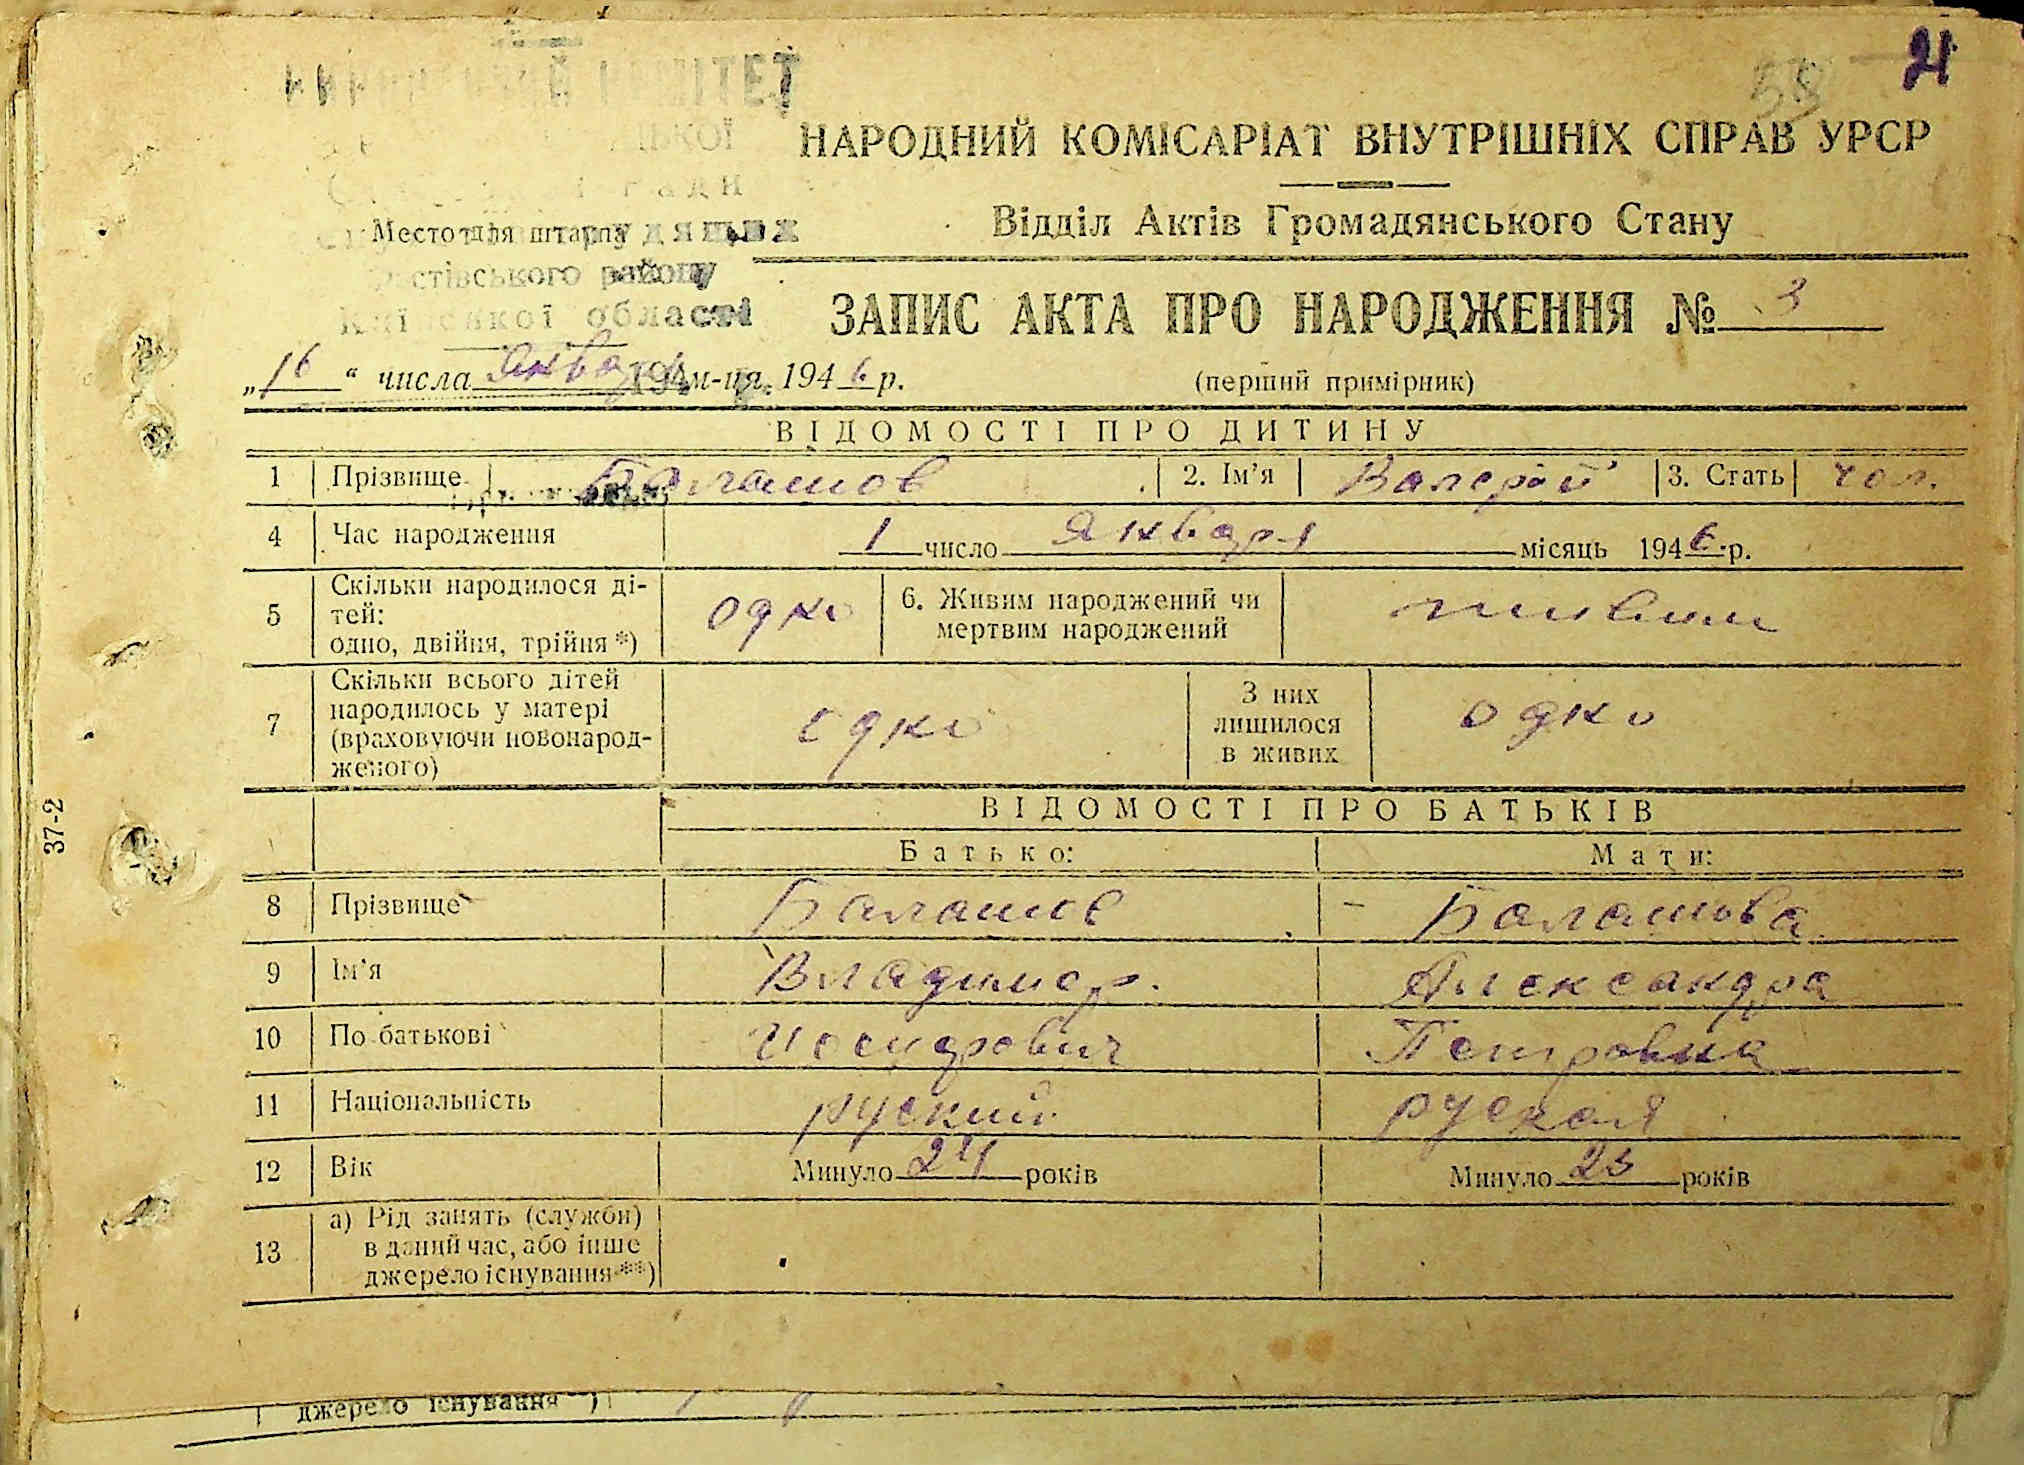 21
58
КОМІТЕТ
НАРОДНИЙ КОМІСАРІАТ ВНУТРІШНІХ СПРАВ УРСР
Відділ Актів Громадянського Стану
Место для штампу
району
Київської області
ЗАПИС АКТА ПРО НАРОДЖЕННЯ № 3
„16“ числа января м-ця 1946 р.
(перший примірник)
ВІДОМОСТІ ПРО ДИТИНУ
1 Прізвище Балашов 2. Ім’я Валерій 3. Стать чол.
4 Час народження 1 число января місяць 1946 р.
5 Скільки народилося ді-
тей:
одно, двійня, трійня *) одно 6. Живим народжений чи
мертвим народжений живим
7 Скільки всього дітей
народилось у матері
(враховуючи новонарод-
женого) одно З них
лишилося
в живих одно
37-2
ВІДОМОСТІ ПРО БАТЬКІВ
Батько: Мати:
8 Прізвище Балашов Балашова
9 Ім’я Владимер. Александра
10 По батькові Иосифович Петровна
11 Національність руский руская
12 Вік Минуло 24 років Минуло 23 років
13 а) Рід занять (служби)
в даний час, або інше
джерело існування **)
джерело існування **)